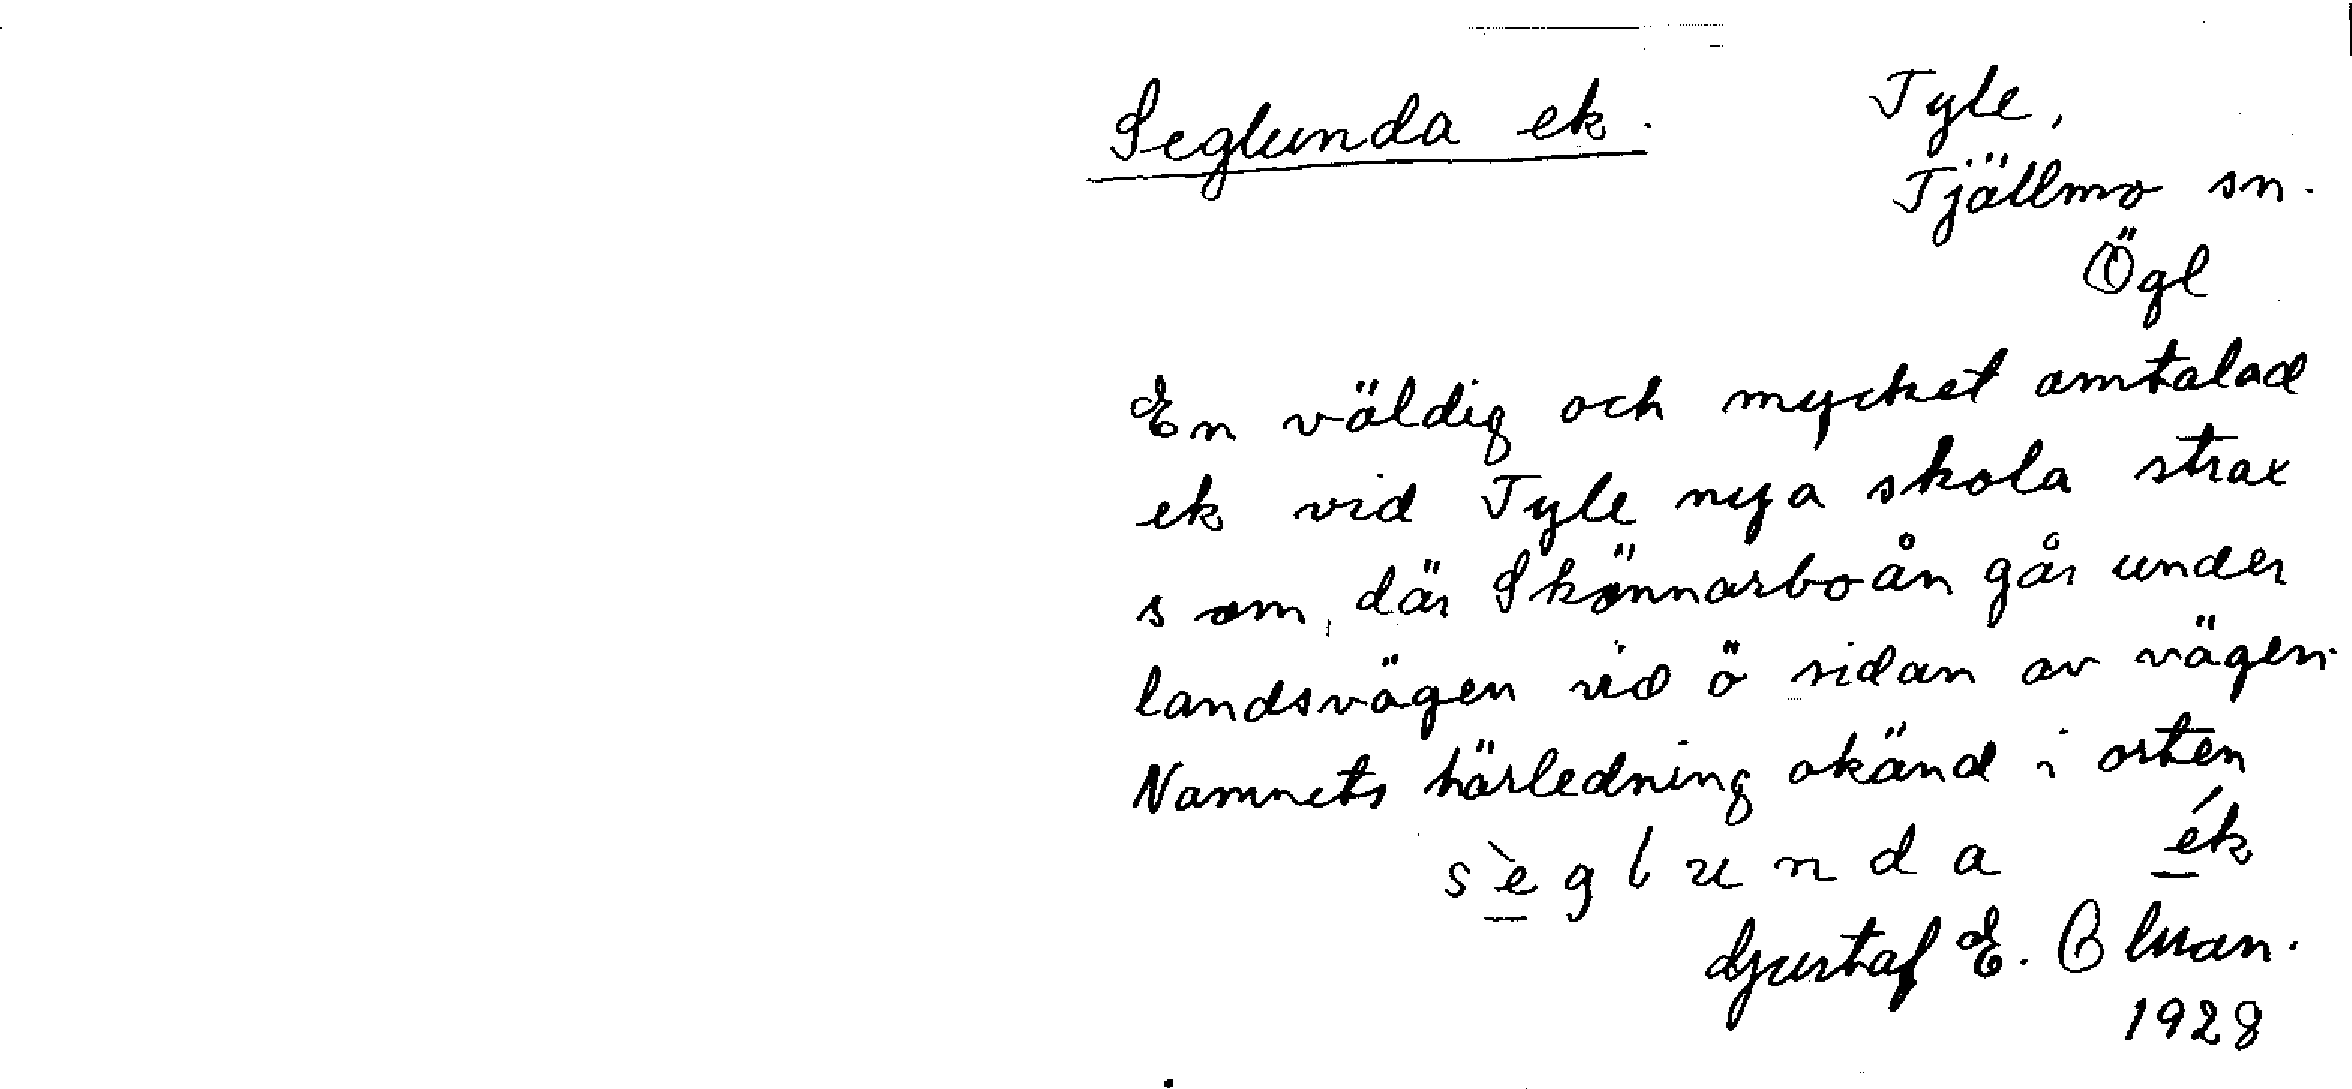 Seglunda ek.
Tyle,
Tjällmo sn.
Ögl
En väldig och mycket omtalad
ek vid Tyle nya skola strax
s om, där Skönnarboån går under
landsvägen vid ö sidan av vägen.
Namnets härledning okänd i orten
sèglunda ék
Gustaf E.
1928